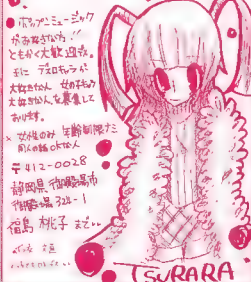 ポップンミュージック
がお好きな方!!
ともかく大歓迎です。
手に デスロキャラが
大好きな人 女の子キャラ
大好きな人を募集して
おります。
× 女性のみ 年齢制限ナシ
同人の話OKな人
〒412-0028
静岡県御殿場市
御殿場324-1
福島 桃子 まで
TSURARA